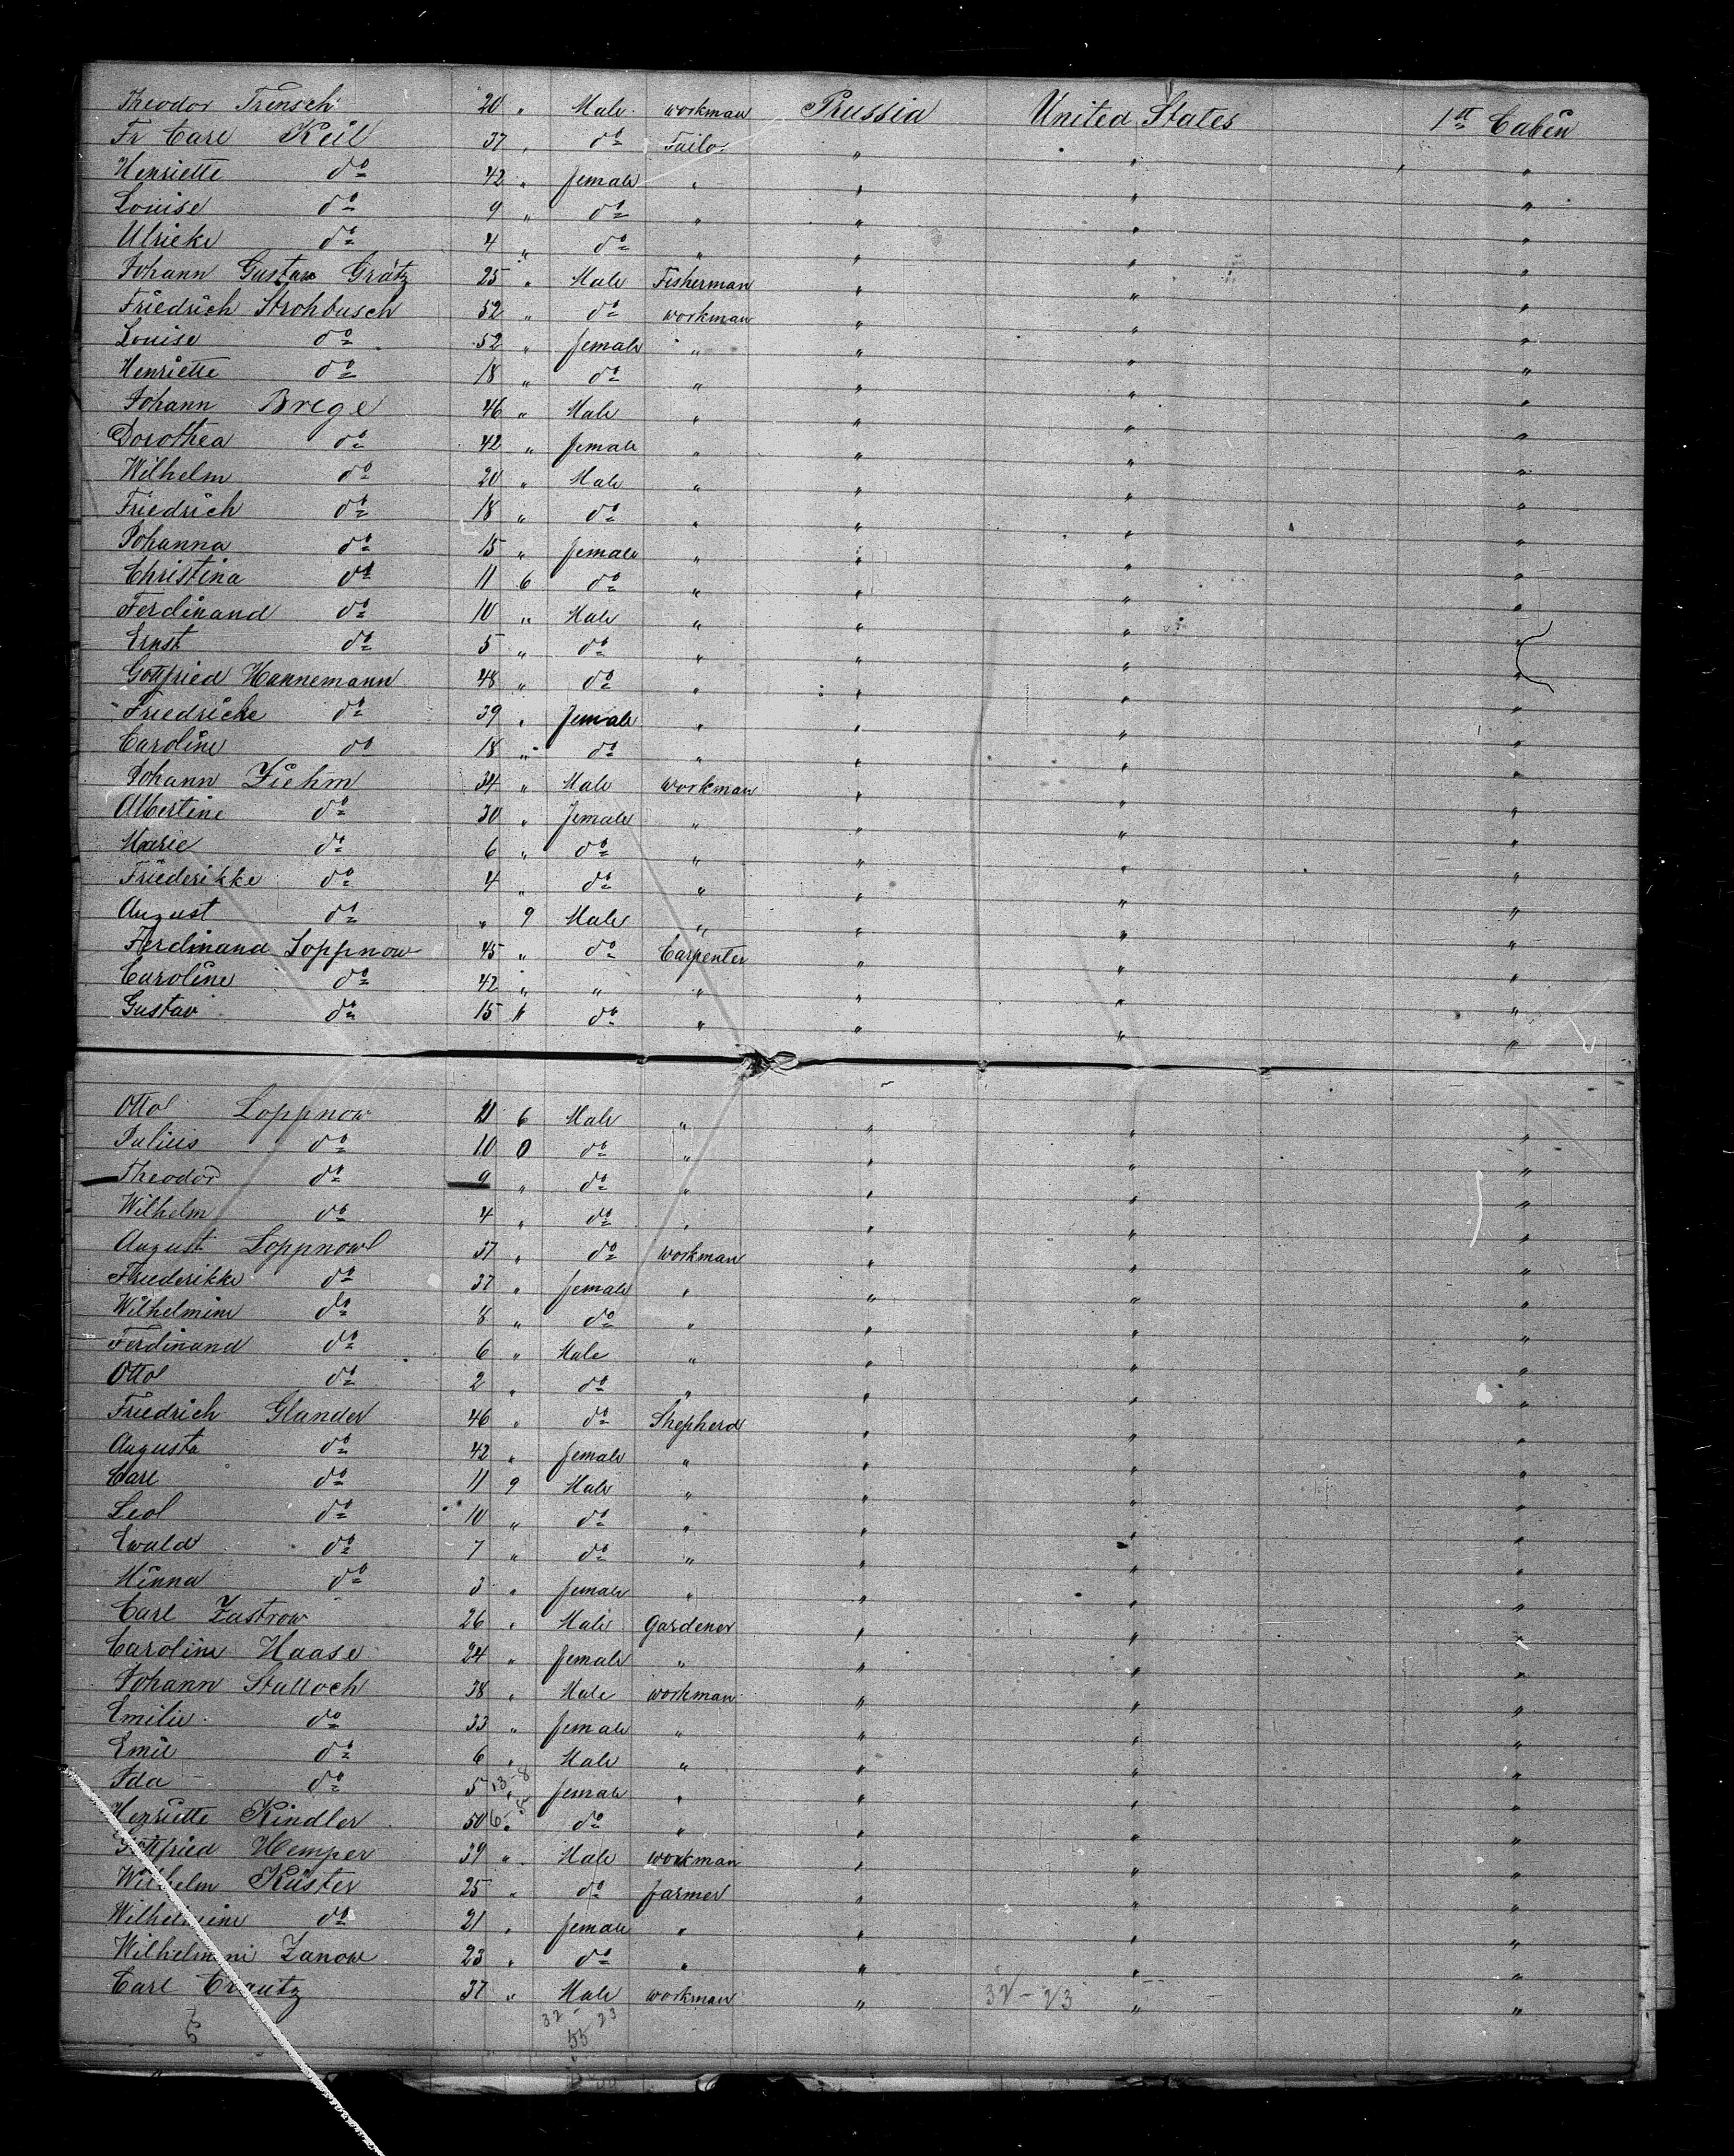 Theodor Trensch 20 " Male workman Prussia United States 1st Cabin
Fr Carl Keil 37 " do Tailor " " "
Henriette do 42 " female " " " "
Louise do 9 " do " " " "
Ulricke do 4 " do " " " "
Johann Gustav Grätz 25 " Male Fisherman " " "
Friedrich Strohbusch 52 " do workman " " "
Louise do 52 " female " " " "
Henriette do 18 " do " " " "
Johann Brege 46 " Male " " " "
Dorothea do 42 " female " " " "
Wilhelm do 20 " Male " " " "
Friedrich do 18 " do " " " "
Johanna do 15 " female " " " "
Christina do 11 6 do " " " "
Ferdinand do 10 " Male " " " "
Ernst do 5 " do " " " "
Gottfried Hannemann 48 " do " " " "
Friedricke do 39 " female " " " "
Caroline do 18 " do " " " "
Johann Ziehm 34 " Male workman " " "
Albertine do 30 " female " " " "
Marie do 6 " do " " " "
Friederikke do 4 " do " " " "
August do " 9 Male " " " "
Ferdinand Loppnow 45 " do Carpenter " " "
Caroline do 42 " " " " " "
Gustav do 15 " do " " " "
Otto Loppnow 11 6 Male " " " "
Julius do 10 0 do " " " "
Theodor do 9 " do " " " "
Wilhelm do 4 " do " " " "
August Loppnow 37 " do workman " " "
Friederikke do 37 " female " " " "
Wilhelmine do 8 " do " " " "
Ferdinand do 6 " Male " " " "
Otto do 2 " do " " " "
Friedrich Glander 46 " do Shepherd " " "
Augusta do 42 " female " " " "
Carl do 11 9 Male " " " "
Leo do 10 " do " " " "
Ewald do 7 " do " " " "
Minna do 3 " female " " " "
Carl Zastrow 26 " Male Gardener " " "
Caroline Haase 24 " female " " " "
Johann Stulloch 38 " Male workman " " "
Emilie do 33 " female " " " "
Emil do 6 " Male " " " "
Ida do 5 " 13-8 female " " " "
Henriette Kindler 50 " 6- do " " " "
Gottfried Hemper 39 " Male workman " " "
Wilhelm Küster 25 " do farmer " " "
Wilhelmine do 21 " female " " " "
Wilhelmine Zanow 23 " do " " " "
Carl Crautz 37 " Male workman " 32-23 " "
32 23
55